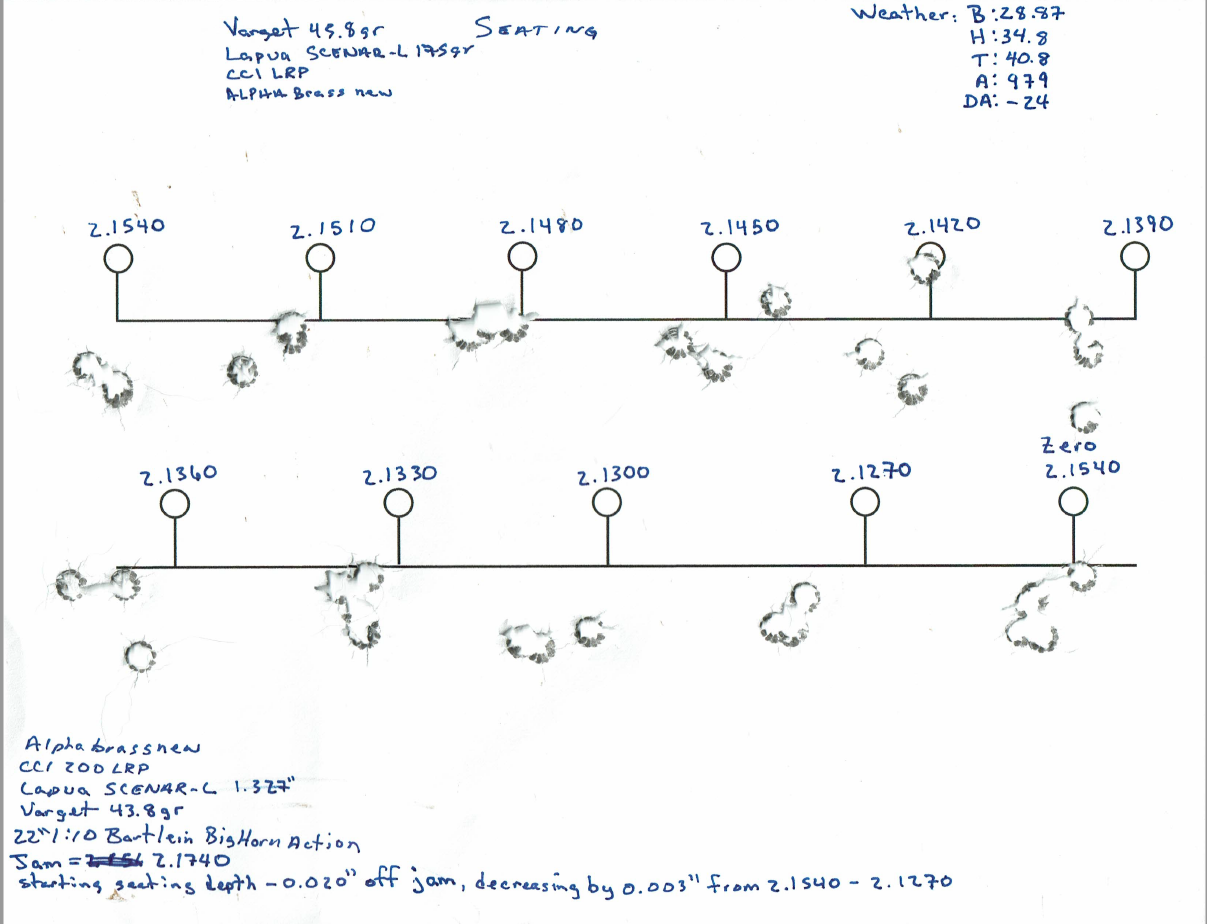 Varget 43.8gr
Lapua SCENAR-L 175gr
CCI LRP
ALPHA Brass new
SEATING
Weather: B:28.87
H:34.8
T:40.8
A:979
DA:-24
2.1540 2.1510 2.1480 2.1450 2.1420 2.1390
Zero
2.1360 2.1330 2.1300 2.1270 2.1540
Alpha brass new
CCI 200 LRP
Lapua SCENAR-L 1.327"
Varget 43.8gr
22" 1:10 Bartlein BigHorn Action
Jam = 2.1740
starting seating depth -0.020" off jam, decreasing by 0.003" from 2.1540 - 2.1270